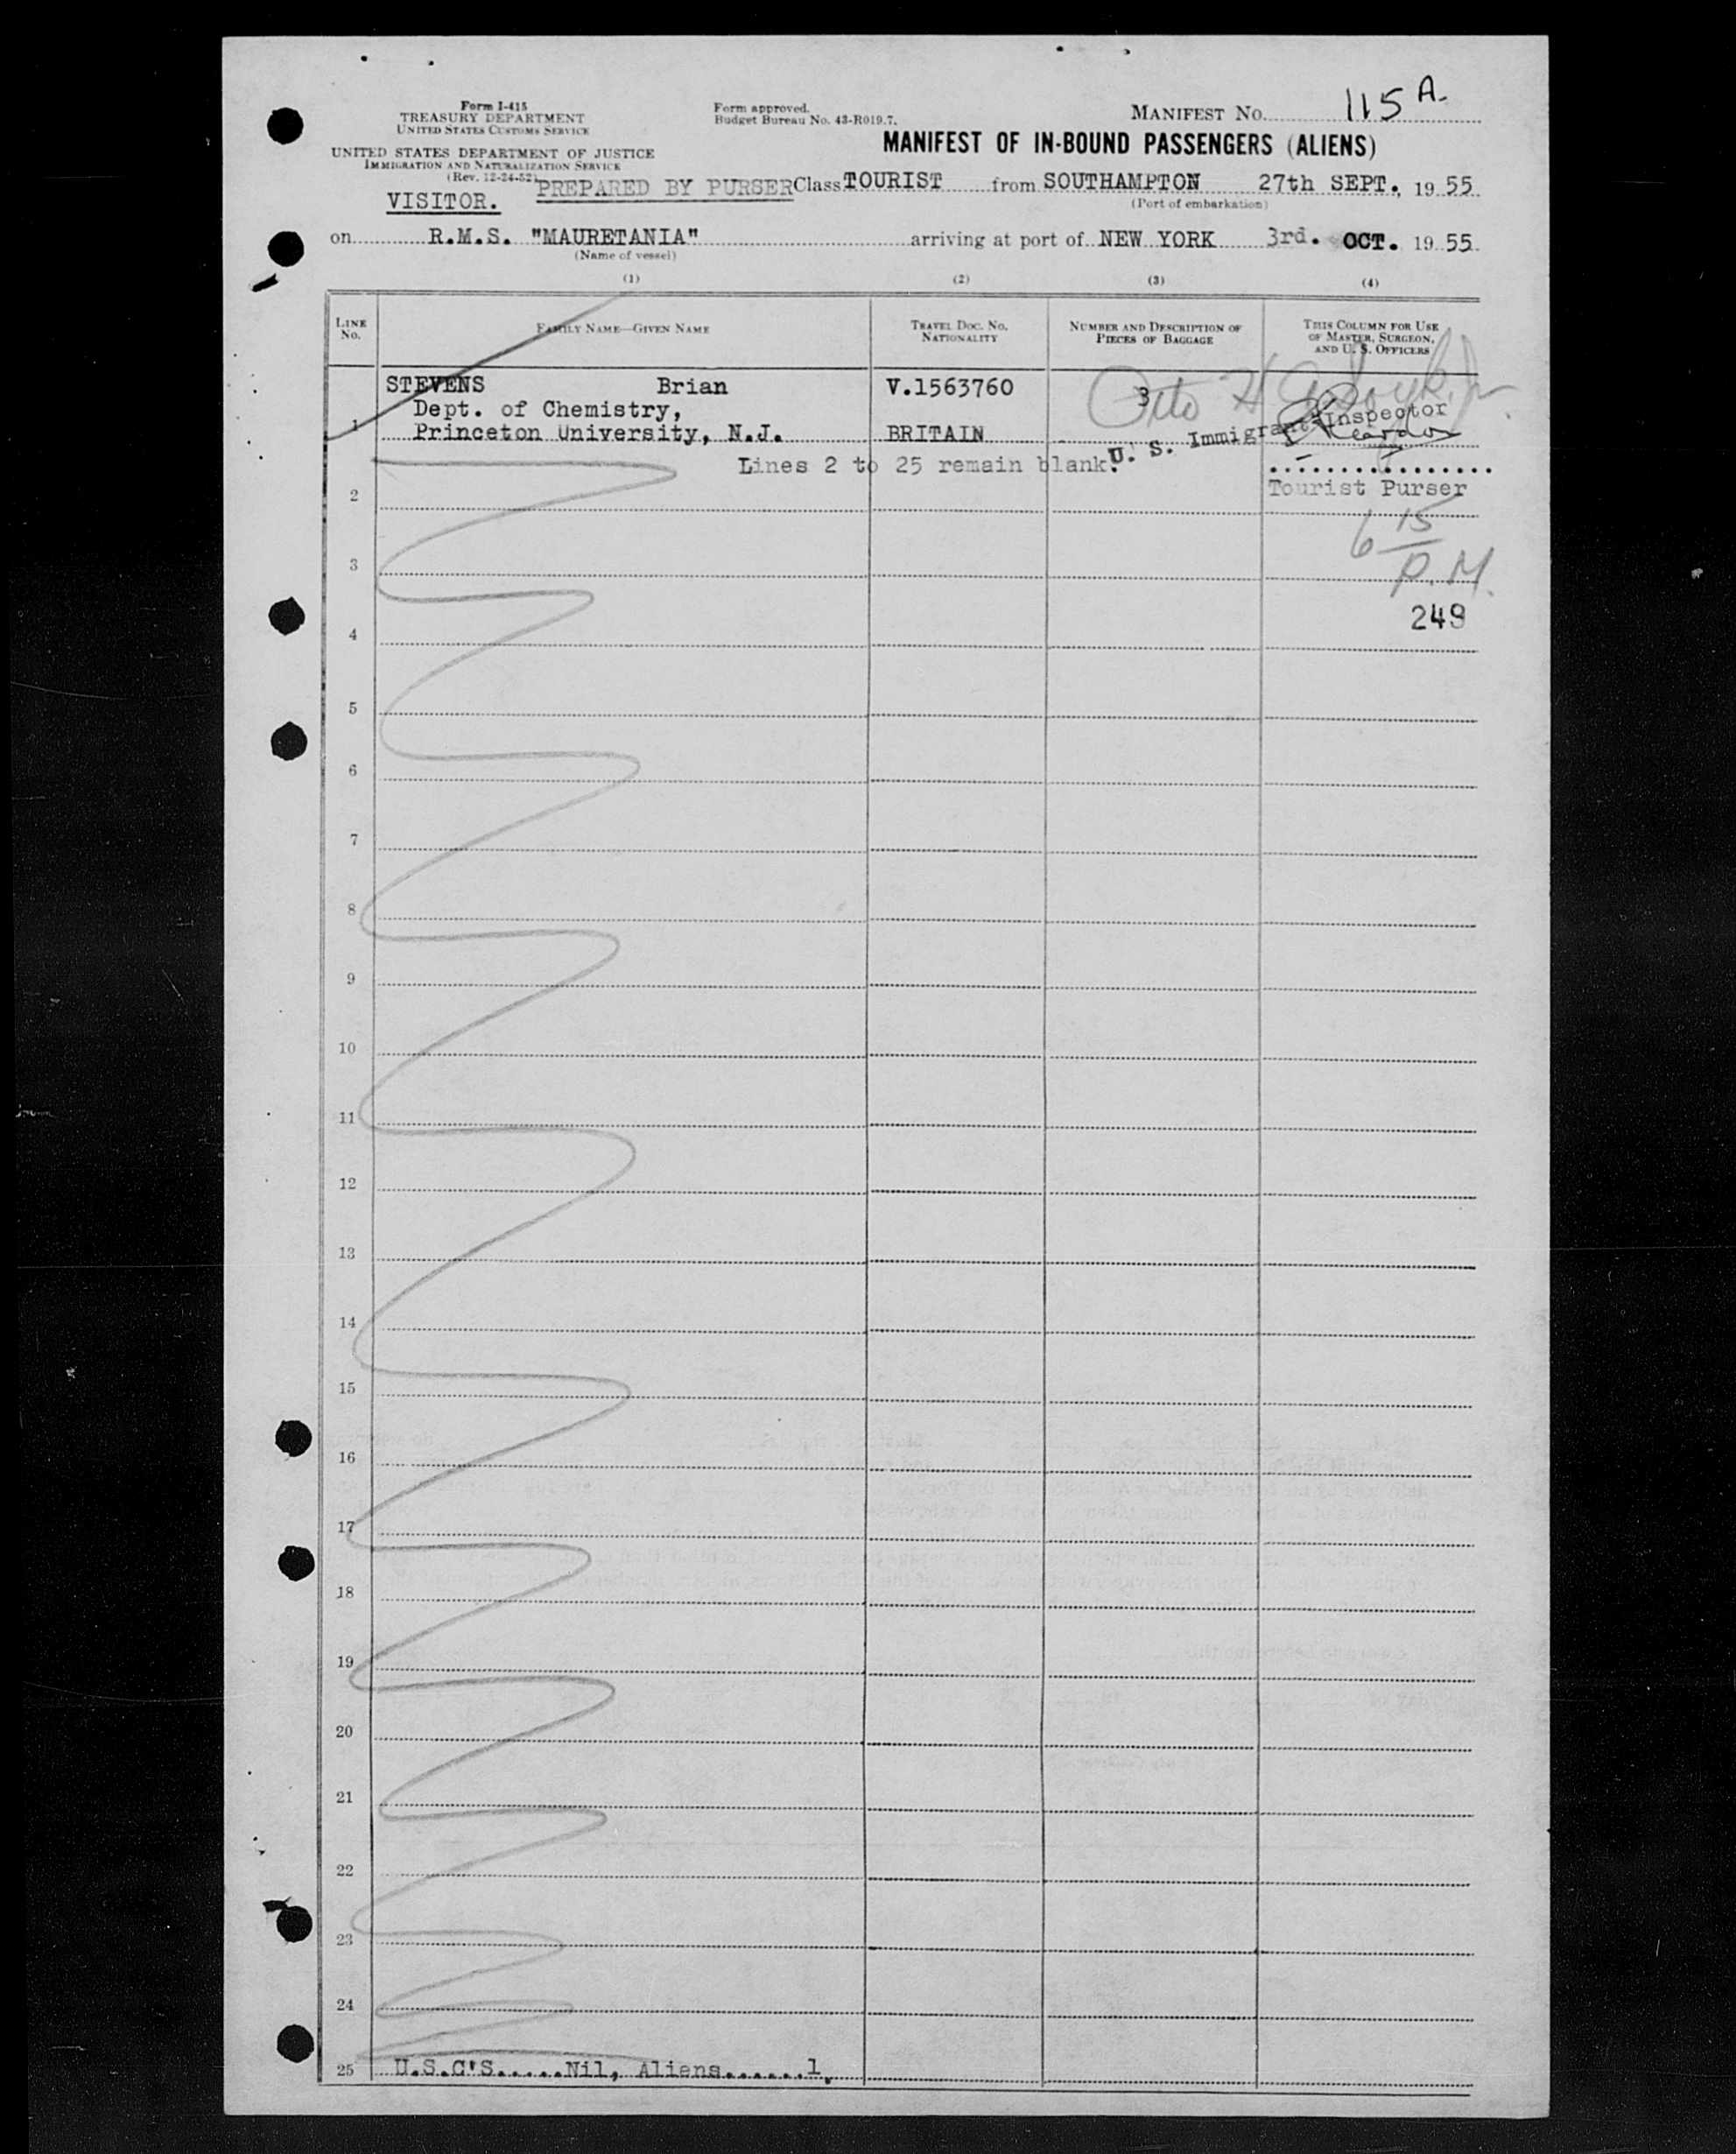 Form I-415
TREASURY DEPARTMENT
UNITED STATES CUSTOMS SERVICE
UNITED STATES DEPARTMENT OF JUSTICE
IMMIGRATION AND NATURALIZATION SERVICE
(Rev. 12-24-52)
Form approved.
Budget Bureau No. 43-R019.7.
MANIFEST No. 115 A.
MANIFEST OF IN-BOUND PASSENGERS (ALIENS)
VISITOR. PREPARED BY PURSER Class TOURIST from SOUTHAMPTON 27th SEPT., 1955
(Port of embarkation)
on R.M.S. "MAURETANIA" arriving at port of NEW YORK 3rd. OCT. 1955
(Name of vessel)
(1) (2) (3) (4)
LINE No. FAMILY NAME—GIVEN NAME TRAVEL DOC. No. NATIONALITY NUMBER AND DESCRIPTION OF PIECES OF BAGGAGE THIS COLUMN FOR USE OF MASTER, SURGEON, AND U. S. OFFICERS
STEVENS Brian V.1563760 3
Dept. of Chemistry,
1 Princeton University, N.J. BRITAIN
U. S. Immigrant Inspector
Lines 2 to 25 remain blank.
Tourist Purser
2
6 15
P.M.
3
249
4
5
6
7
8
9
10
11
12
13
14
15
16
17
18
19
20
21
22
23
24
25 U.S.C'S.....Nil, Aliens.......1.